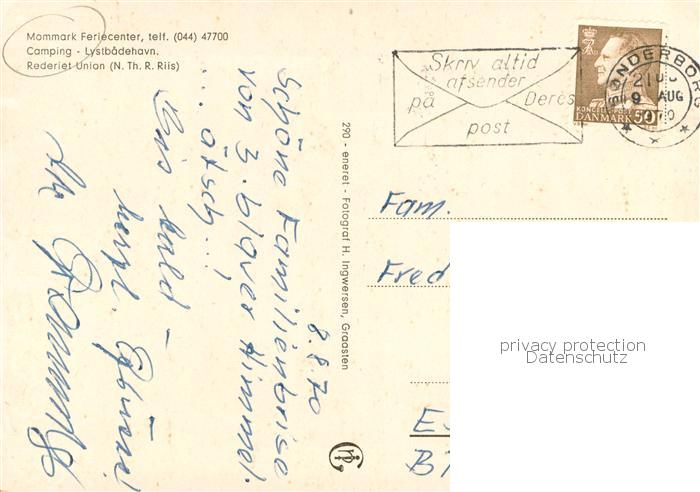 Mommark Feriecenter, telf. (044) 47700
Camping - Lystbådehavn.
Rederiet Union (N. Th. R. Riis)
Skriv altid
afsender
på Deres
post
SØNDERBORG
9 AUG
KONGELIG POST
DANMARK 50
290 - eneret - Fotograf H. Ingwersen, Graasten
8.8.70
Schöne Familienbrise
von 3. blauer Himmel.
... ätsch...!
Bis bald -
herzl. Grüsse!
Ihr
Fam.
Fred
E
B
privacy protection
Datenschutz